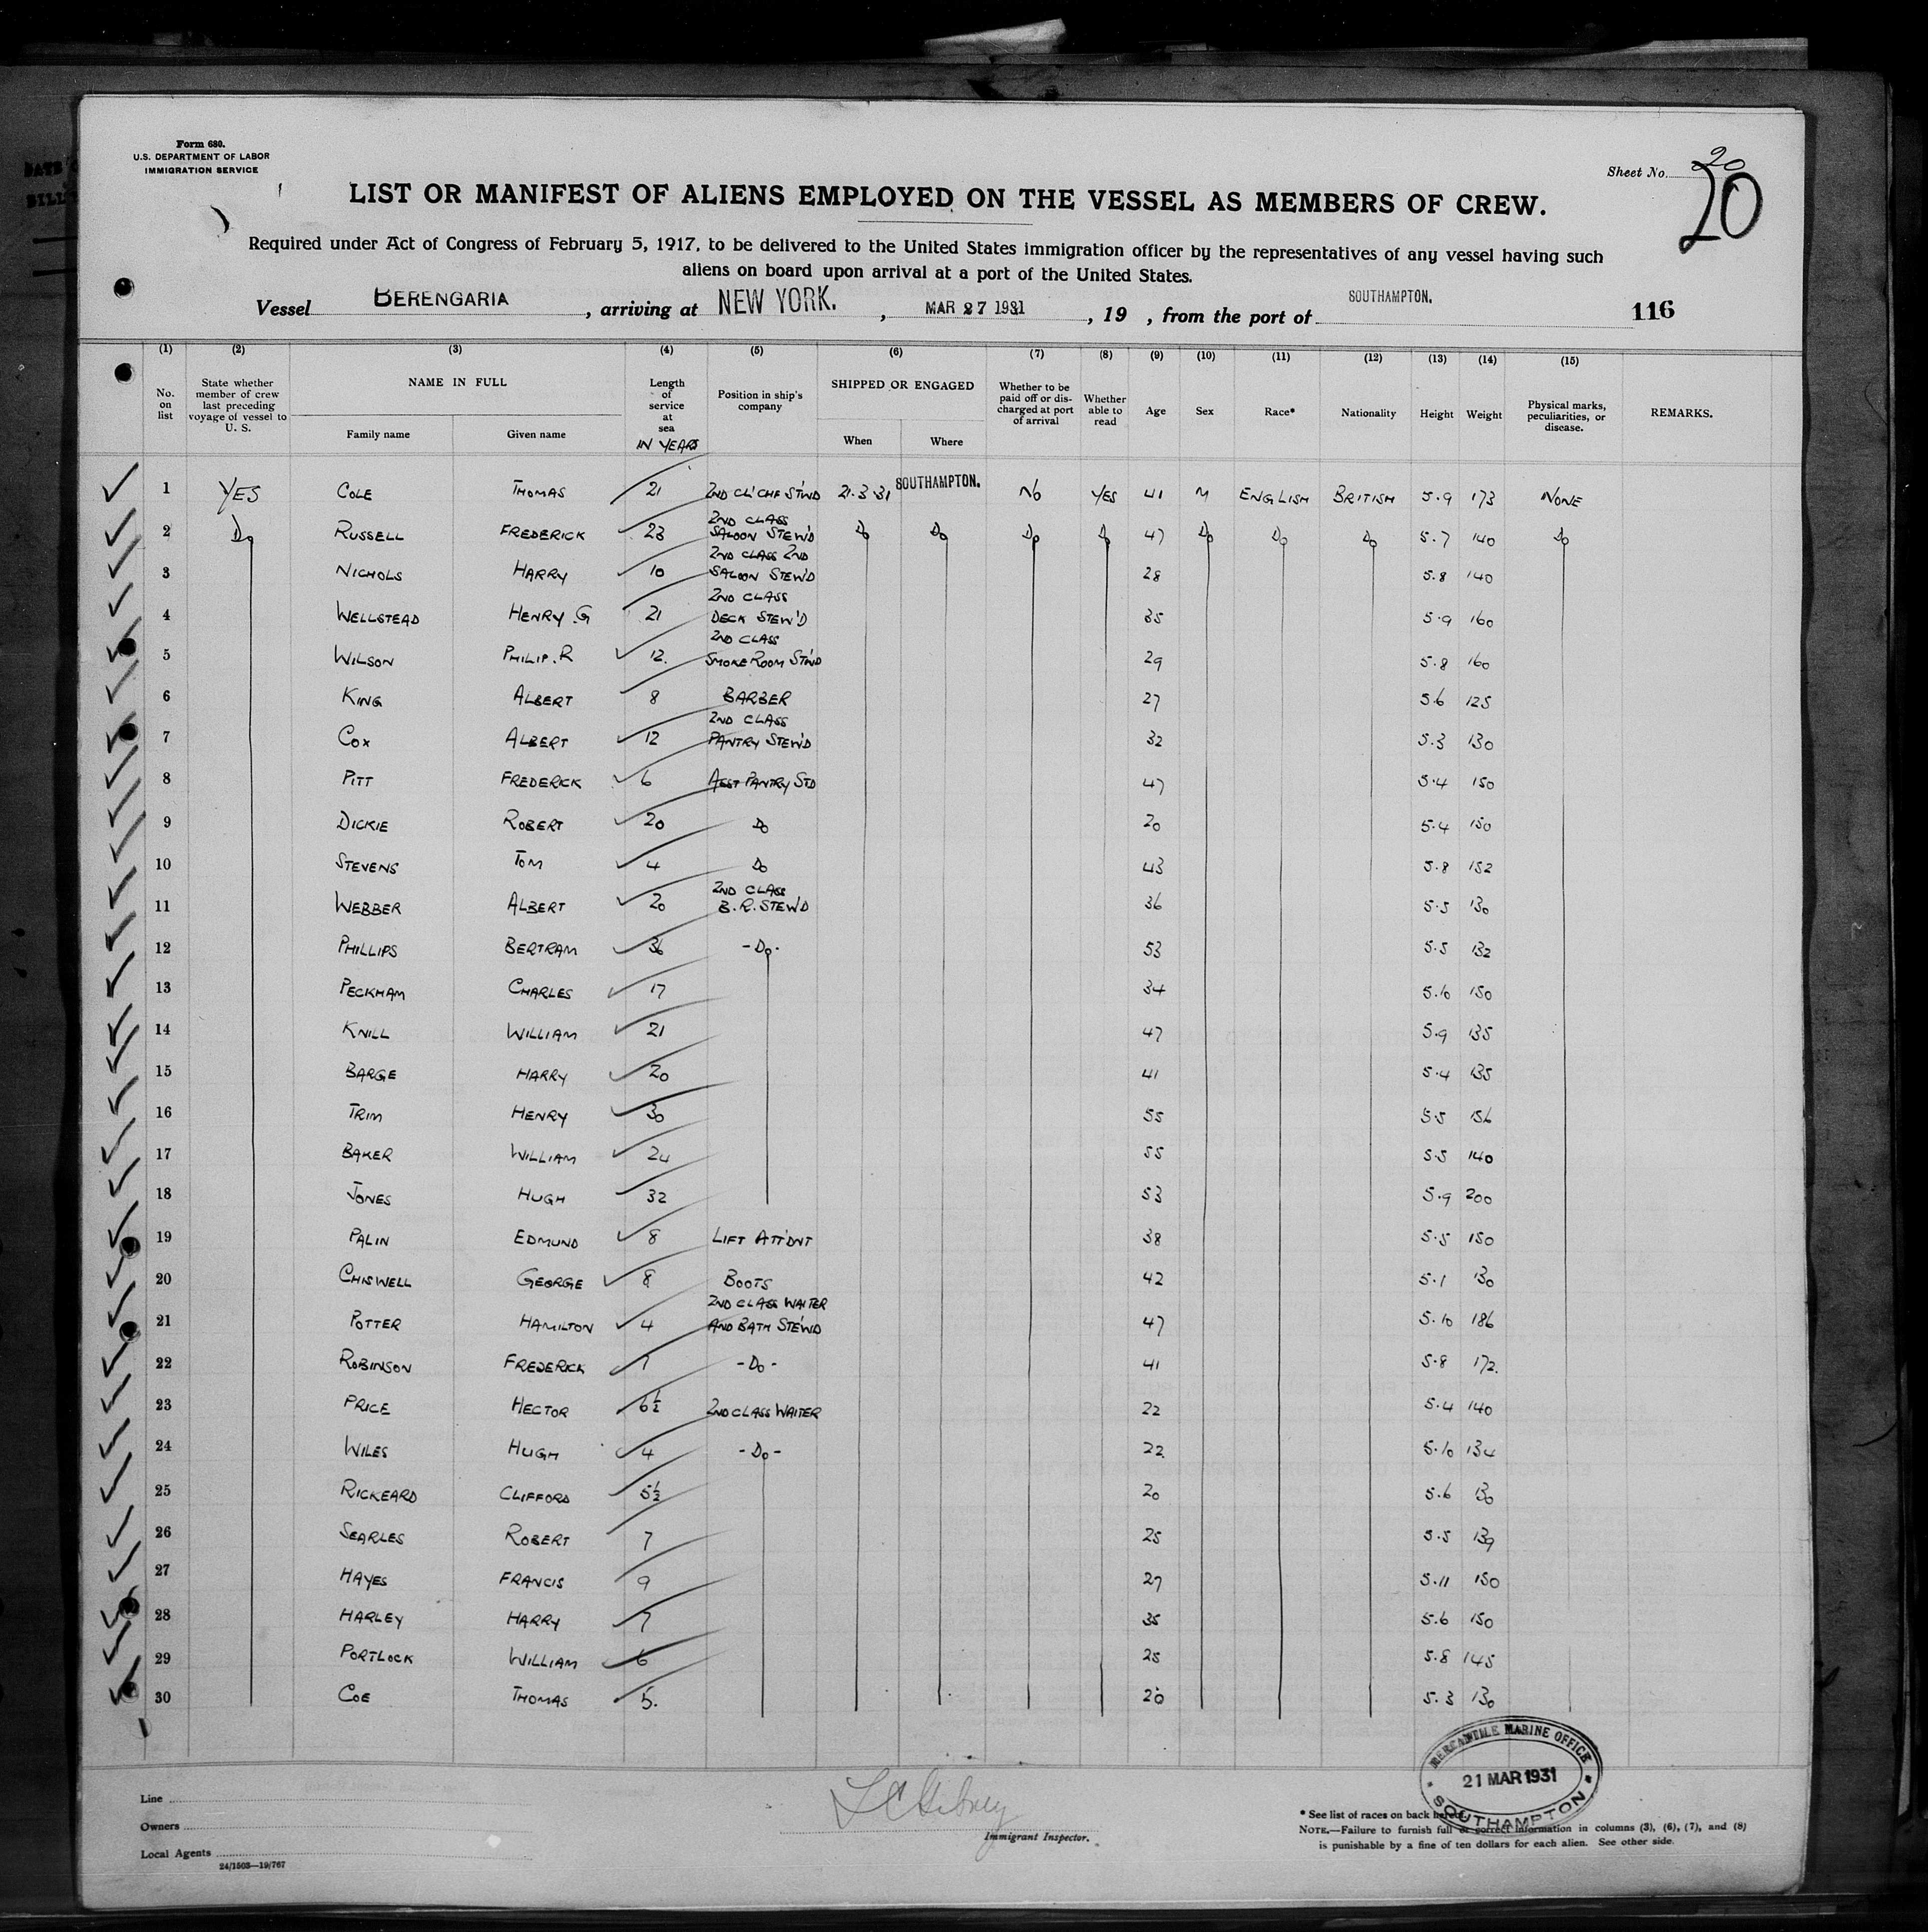 Form 680.
U.S. DEPARTMENT OF LABOR
IMMIGRATION SERVICE
Sheet No. 20
20
LIST OR MANIFEST OF ALIENS EMPLOYED ON THE VESSEL AS MEMBERS OF CREW.
Required under Act of Congress of February 5, 1917, to be delivered to the United States immigration officer by the representatives of any vessel having such
aliens on board upon arrival at a port of the United States.
Vessel BERENGARIA, arriving at NEW YORK., MAR 27 1931, 19 , from the port of SOUTHAMPTON. 116
(1) (2) (3) (4) (5) (6) (7) (8) (9) (10) (11) (12) (13) (14) (15)
No. on list State whether member of crew last preceding voyage of vessel to U. S. NAME IN FULL Family name Given name Length of service at sea IN YEARS Position in ship's company SHIPPED OR ENGAGED When Where Whether to be paid off or discharged at port of arrival Whether able to read Age Sex Race* Nationality Height Weight Physical marks, peculiarities, or disease. REMARKS.
1 YES COLE THOMAS 21 2ND CL' CHF ST'WD 21.3.31 SOUTHAMPTON. NO YES 41 M ENGLISH BRITISH 5.9 173 NONE
2 Do RUSSELL FREDERICK 23 2ND CLASS SALOON STEW'D Do Do Do Do 47 Do Do Do 5.7 140 Do
3 NICHOLS HARRY 10 2ND CLASS 2ND SALOON STEW'D 28 5.8 140
4 WELLSTEAD HENRY.G 21 2ND CLASS DECK STEW'D 35 5.9 160
5 WILSON PHILIP.R 12. 2ND CLASS SMOKE ROOM ST'WD 29 5.8 160
6 KING ALBERT 8 BARBER 27 5.6 125
7 COX ALBERT 12 2ND CLASS PANTRY STEW'D 32 5.3 130
8 PITT FREDERICK 6 ASST PANTRY STD 47 5.4 150
9 DICKIE ROBERT 20 Do 20 5.4 150
10 STEVENS TOM 4 Do 43 5.8 152
11 WEBBER ALBERT 20 2ND CLASS B.R. STEW'D 36 5.5 130
12 PHILLIPS BERTRAM 36 -Do- 53 5.5 132
13 PECKHAM CHARLES 17 34 5.10 150
14 KNILL WILLIAM 21 47 5.9 135
15 BARGE HARRY 20 41 5.4 135
16 TRIM HENRY 30 55 5.5 156
17 BAKER WILLIAM 24 55 5.5 140
18 JONES HUGH 32 53 5.9 200
19 PALIN EDMUND 8 LIFT ATT'DNT 38 5.5 150
20 CHISWELL GEORGE 8 BOOTS 42 5.1 130
21 POTTER HAMILTON 4 2ND CLASS WAITER AND BATH STEWD 47 5.10 186
22 ROBINSON FREDERICK 1 -Do- 41 5.8 172.
23 PRICE HECTOR 6½ 2ND CLASS WAITER 22 5.4 140
24 WILES HUGH 4 -Do- 22 5.10 134
25 RICKEARD CLIFFORD 5½ 20 5.6 130
26 SEARLES ROBERT 7 25 5.5 139
27 HAYES FRANCIS 9 27 5.11 150
28 HARLEY HARRY 7 35 5.6 150
29 PORTLOCK WILLIAM 6 25 5.8 145
30 COE THOMAS 5. 20 5.3 130
MERCANTILE MARINE OFFICE
21 MAR 1931
SOUTHAMPTON
Line
Owners
Local Agents
24/1503—19/767
Immigrant Inspector.
* See list of races on back hereof.
NOTE.—Failure to furnish full or correct information in columns (3), (6), (7), and (8)
is punishable by a fine of ten dollars for each alien. See other side.